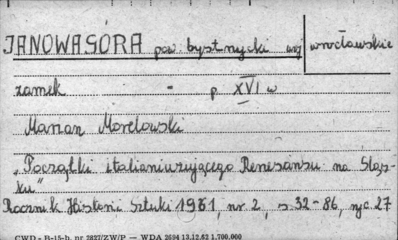 JANOWAGÓRA pow. bystrzycki woj wrocławskie
zamek - p XVI w
Marian Morelowski
„Początki italianizującego Renesansu na Śląs-
ku"
Rocznik Historii Sztuki 1961, nr 2, s. 32-86, ryc. 27
CWD - B-15-h. nr 2827/ZW/P — WDA 2694 13.12.62 1.700.000